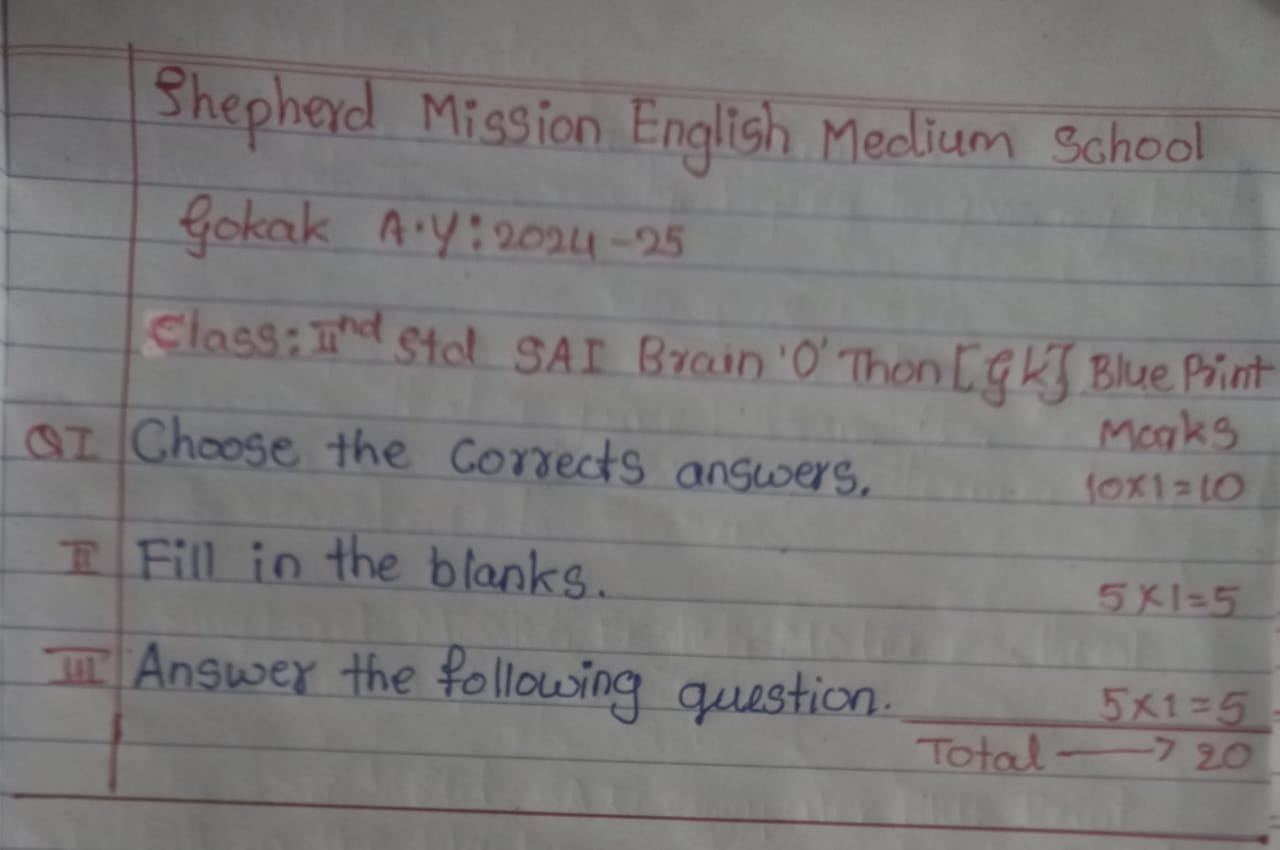 Shepherd Mission English Medium School
Gokak A.Y: 2024-25
Class: IInd Std SAI Brain 'O' Thon [GK] Blue Print
Marks
QI Choose the Corrects answers. 10x1=10
II Fill in the blanks. 5x1=5
III Answer the following question. 5x1=5
Total → 20